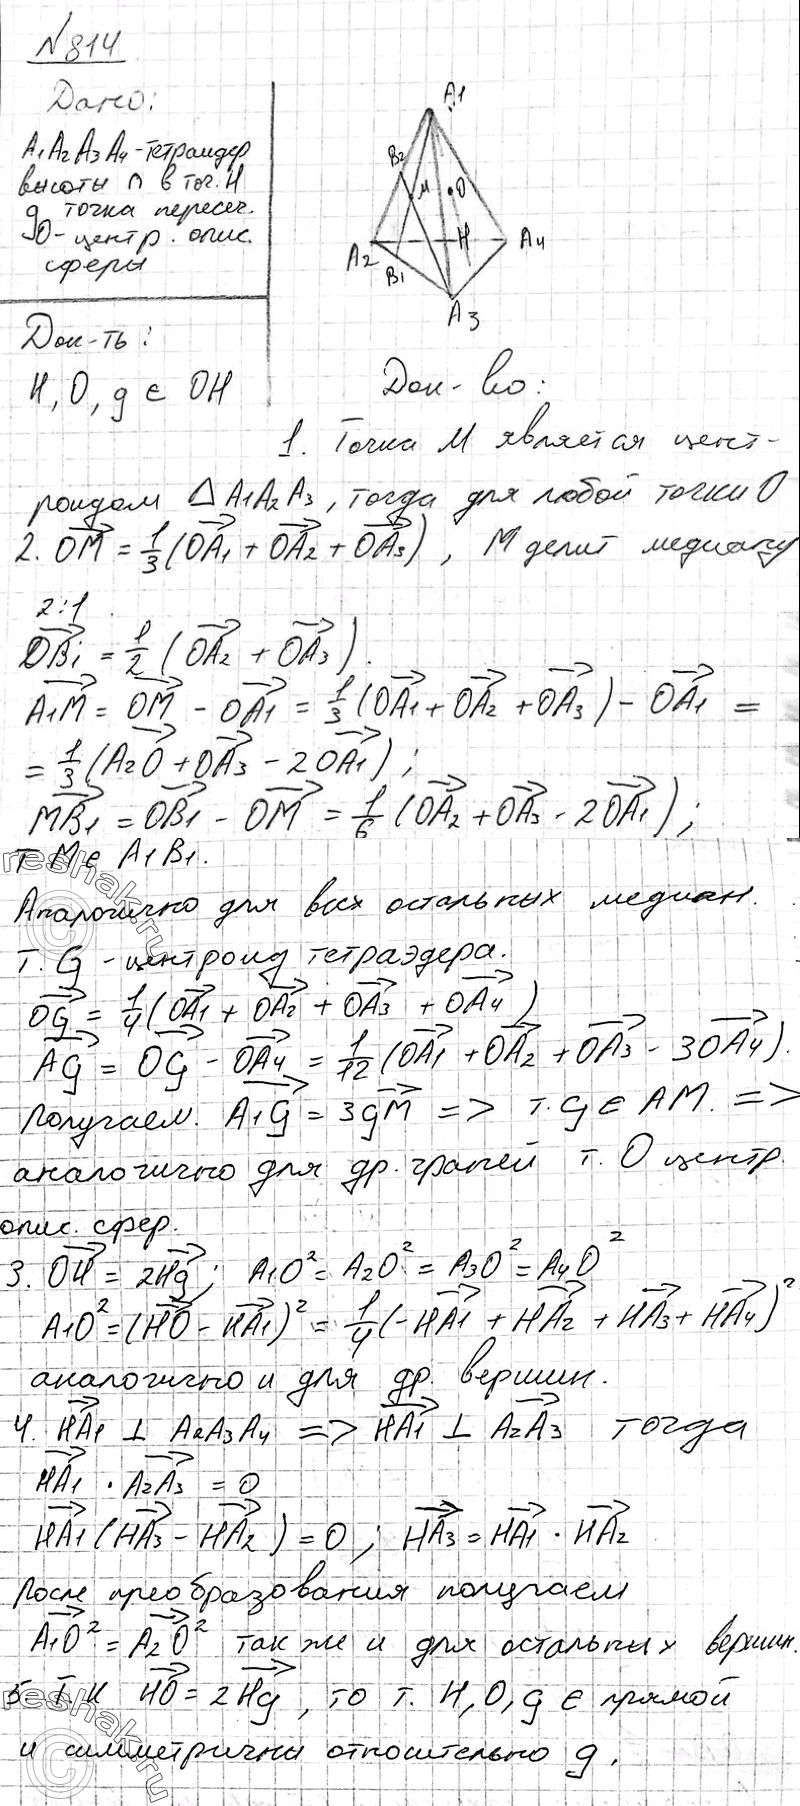 №814
Дано:
A1A2A3A4-тетраидер
высоты ∩ в точ. H
g точка пересеч.
O-центр. опис.
сферы
Док-ть:
H, O, g ∈ OH
A1
B2
M
O
A2
H
A4
B1
A3
Док-во:
1. Точка M является цент-
роидом △A1A2A3, тогда для любой точки O
2. OM = 1/3(OA1 + OA2 + OA3), M делит медиану
2:1
OB1 = 1/2 (OA2 + OA3).
A1M = OM - OA1 = 1/3(OA1 + OA2 + OA3) - OA1 =
= 1/3 (A2O + OA3 - 2OA1);
MB1 = OB1 - OM = 1/6 (OA2 + OA3 - 2OA1);
т. M ∈ A1B1.
Аналогично для всех остальных медиан.
т. G - центроид тетраэдера.
Og = 1/4(OA1 + OA2 + OA3 + OA4)
Ag = Og - OA4 = 1/12 (OA1 + OA2 + OA3 - 3OA4).
Получаем. A1g = 3gM => т. g ∈ AM. =>
аналогично для др. граней т. O центр.
опис. сфер.
3. OH = 2Hg; A1O² = A2O² = A3O² = A4O²
A1O² = (HO - HA1)² = 1/4(-HA1 + HA2 + HA3 + HA4)²
аналогично и для др. вершин.
4. HA1 ⊥ A2A3A4 => HA1 ⊥ A2A3 тогда
HA1 · A2A3 = 0
HA1(HA3 - HA2) = 0; HA3 = HA1 · HA2
После преобразования получаем
A1O² = A2O² так же и для остальных вершин.
5. Т.к HO = 2Hg, то т. H, O, g ∈ прямой
и симметричны относительно g.
reshak.ru
reshak.ru